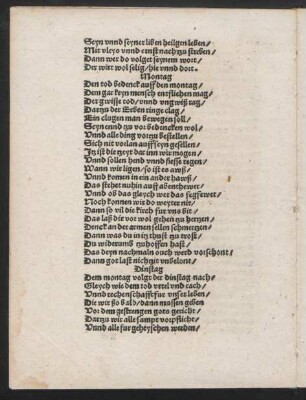 Seyn vnnd seyner liben heilgen leben/
Mit vleys vnnd ernst nach zu streben/
Dann wer do volget seynem wort/
Der wirt wol selig/hie vnnd dort.
Montag
Den tod bedenck auff den montag/
Dem gar keyn mensch entfliehen mag/
Der gwisse tod/vnnd vngwiß tag/
Dartzu der Erben ringe clag/
Ein clugen man bewegen soll/
Seyn ennd zu vor bedencken wol/
Vnnd alle ding vorzu bestellen/
Sich nit vorlan auff seyn gesellen/
Itz ist die zeyt dar inn wir mogen/
Vnnd sollen hend vnnd fiesse regen/
Wann wir ligen/so ist es auß/
Vnnd komen in ein ander hawß/
Das stehet nuhin auff abenthewer/
Vnnd ob das gleych wer das fegfewer/
Noch konnen wir do weyter nit/
Dann so vil die kirch fur vns bit/
Das laß dir vor wol gehen zu hertzen/
Denck an der armen sellen schmertzen/
Dann was du in itz thust zu trost/
Du widerumb zu hoffen hast/
Das deyn nachmaln auch werd vorschont/
Dann got last nichtzit vnbelont/
Dinstag
Dem montag volget der dinstag nach/
Gleych wie dem tod vrteyl vnd rach/
Vnnd rechenschafft fur vnser leben/
Die wir so bald/dann mussen geben
Vor dem gestrengen gots gericht/
Dartzu wir alle sampt vorpflicht/
Vnnd alle fur geheyschen werden/